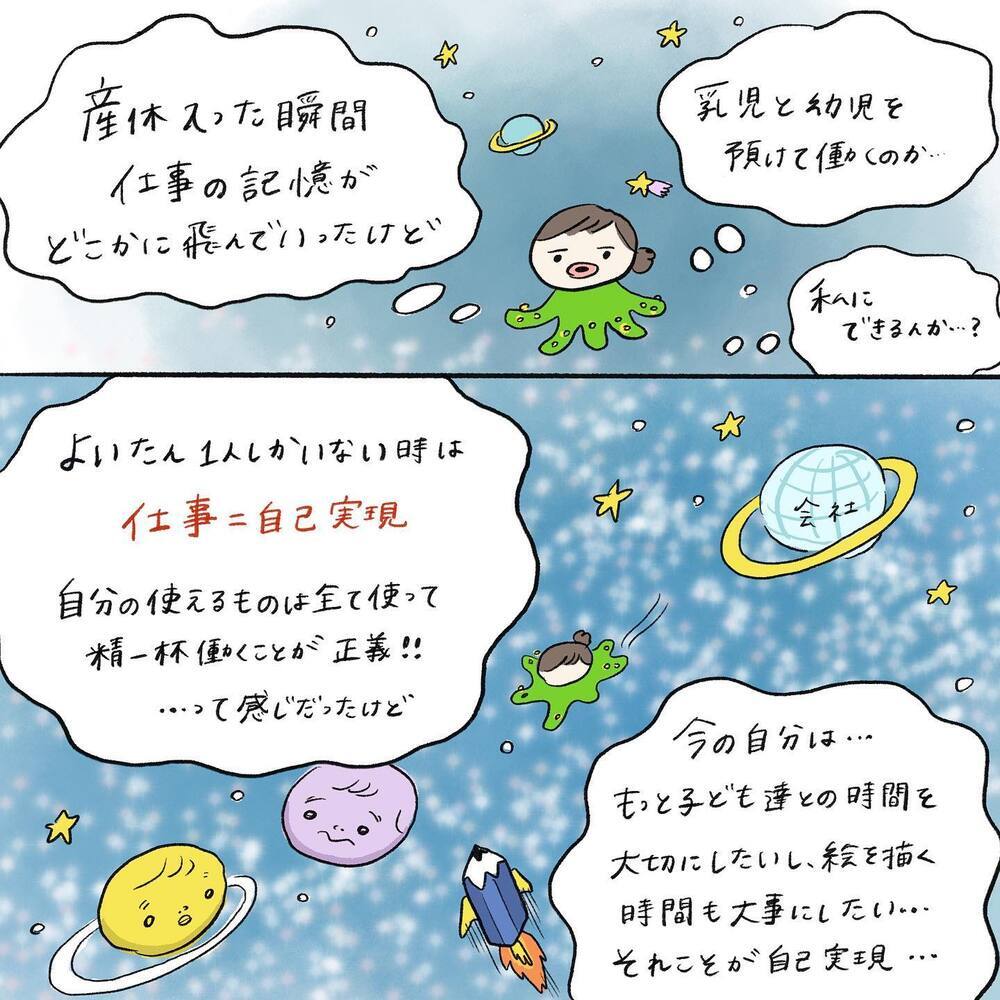 産休入った瞬間
仕事の記憶が
どこかに飛んでいったけど
乳児と幼児を
預けて働くのか…
私に
できるんか…?
よいたん1人しかいない時は
仕事=自己実現
自分の使えるものは全て使って
精一杯働くことが正義!!
…って感じだったけど
会社
今の自分は…
もっと子ども達との時間を
大切にしたいし、絵を描く
時間も大事にしたい…
それことが自己実現…